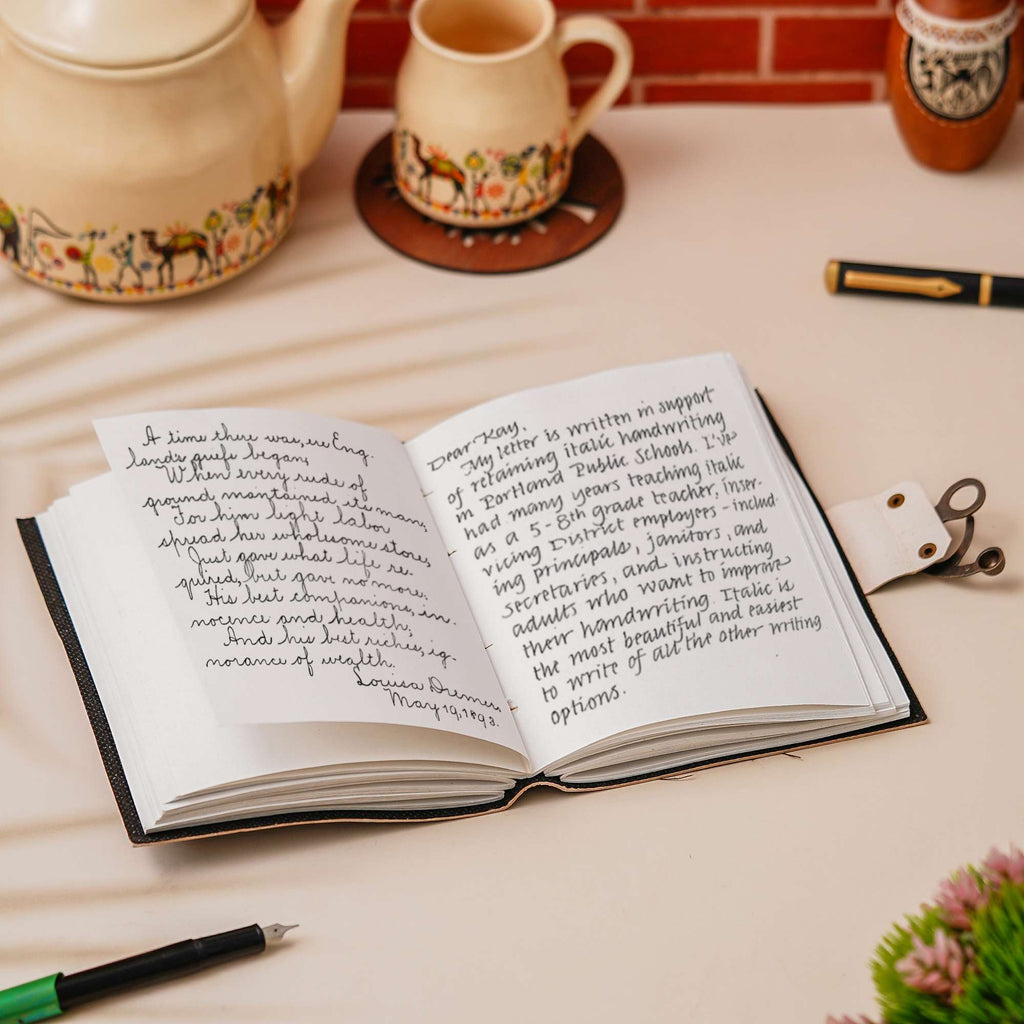 A time there was, ere Eng-
land's griefs began,
When every rude of
ground maintained its man,
For him light labor
spread her wholesome store,
Just gave what life re-
quired, but gave no more.
His best companions, in-
nocence and health;
And his best riches, ig-
norance of wealth.
Louisa
May 19, 1893.
Dear Kay,
My letter is written in support
of retaining italic handwriting
in Portland Public Schools. I've
had many years teaching italic
as a 5-8th grade teacher, inser-
vicing District employees - includ-
ing principals, janitors, and
secretaries, and instructing
adults who want to improve
their handwriting. Italic is
the most beautiful and easiest
to write of all the other writing
options.